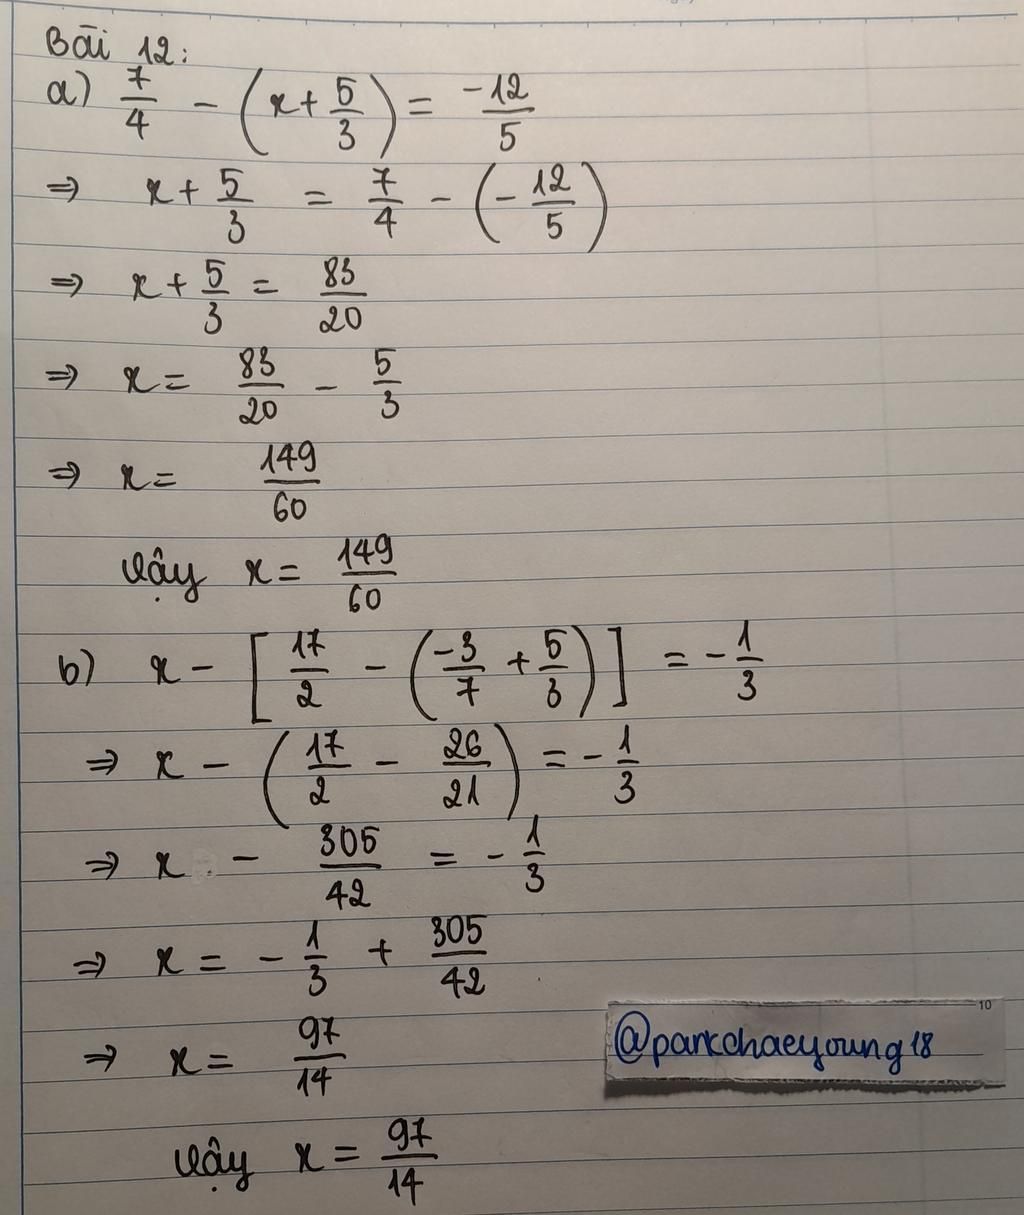 Bài 12:
a) 7/4 - (x + 5/3) = -12/5
⇒ x + 5/3 = 7/4 - (-12/5)
⇒ x + 5/3 = 83/20
⇒ x = 83/20 - 5/3
⇒ x = 149/60
Vậy x = 149/60
b) x - [17/2 - (-3/7 + 5/3)] = -1/3
⇒ x - (17/2 - 26/21) = -1/3
⇒ x - 305/42 = -1/3
⇒ x = -1/3 + 305/42
10
⇒ x = 97/14
@parkchaeyoung18
Vậy x = 97/14